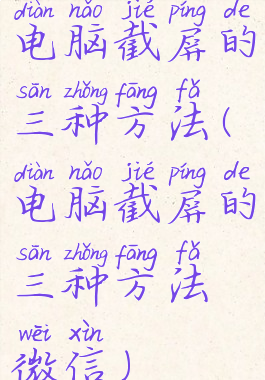 diàn nǎo jié píng de
电脑截屏的
sān zhǒng fāng fǎ
三种方法(
diàn nǎo jié píng de
电脑截屏的
sān zhǒng fāng fǎ
三种方法
wēi xìn
微信)